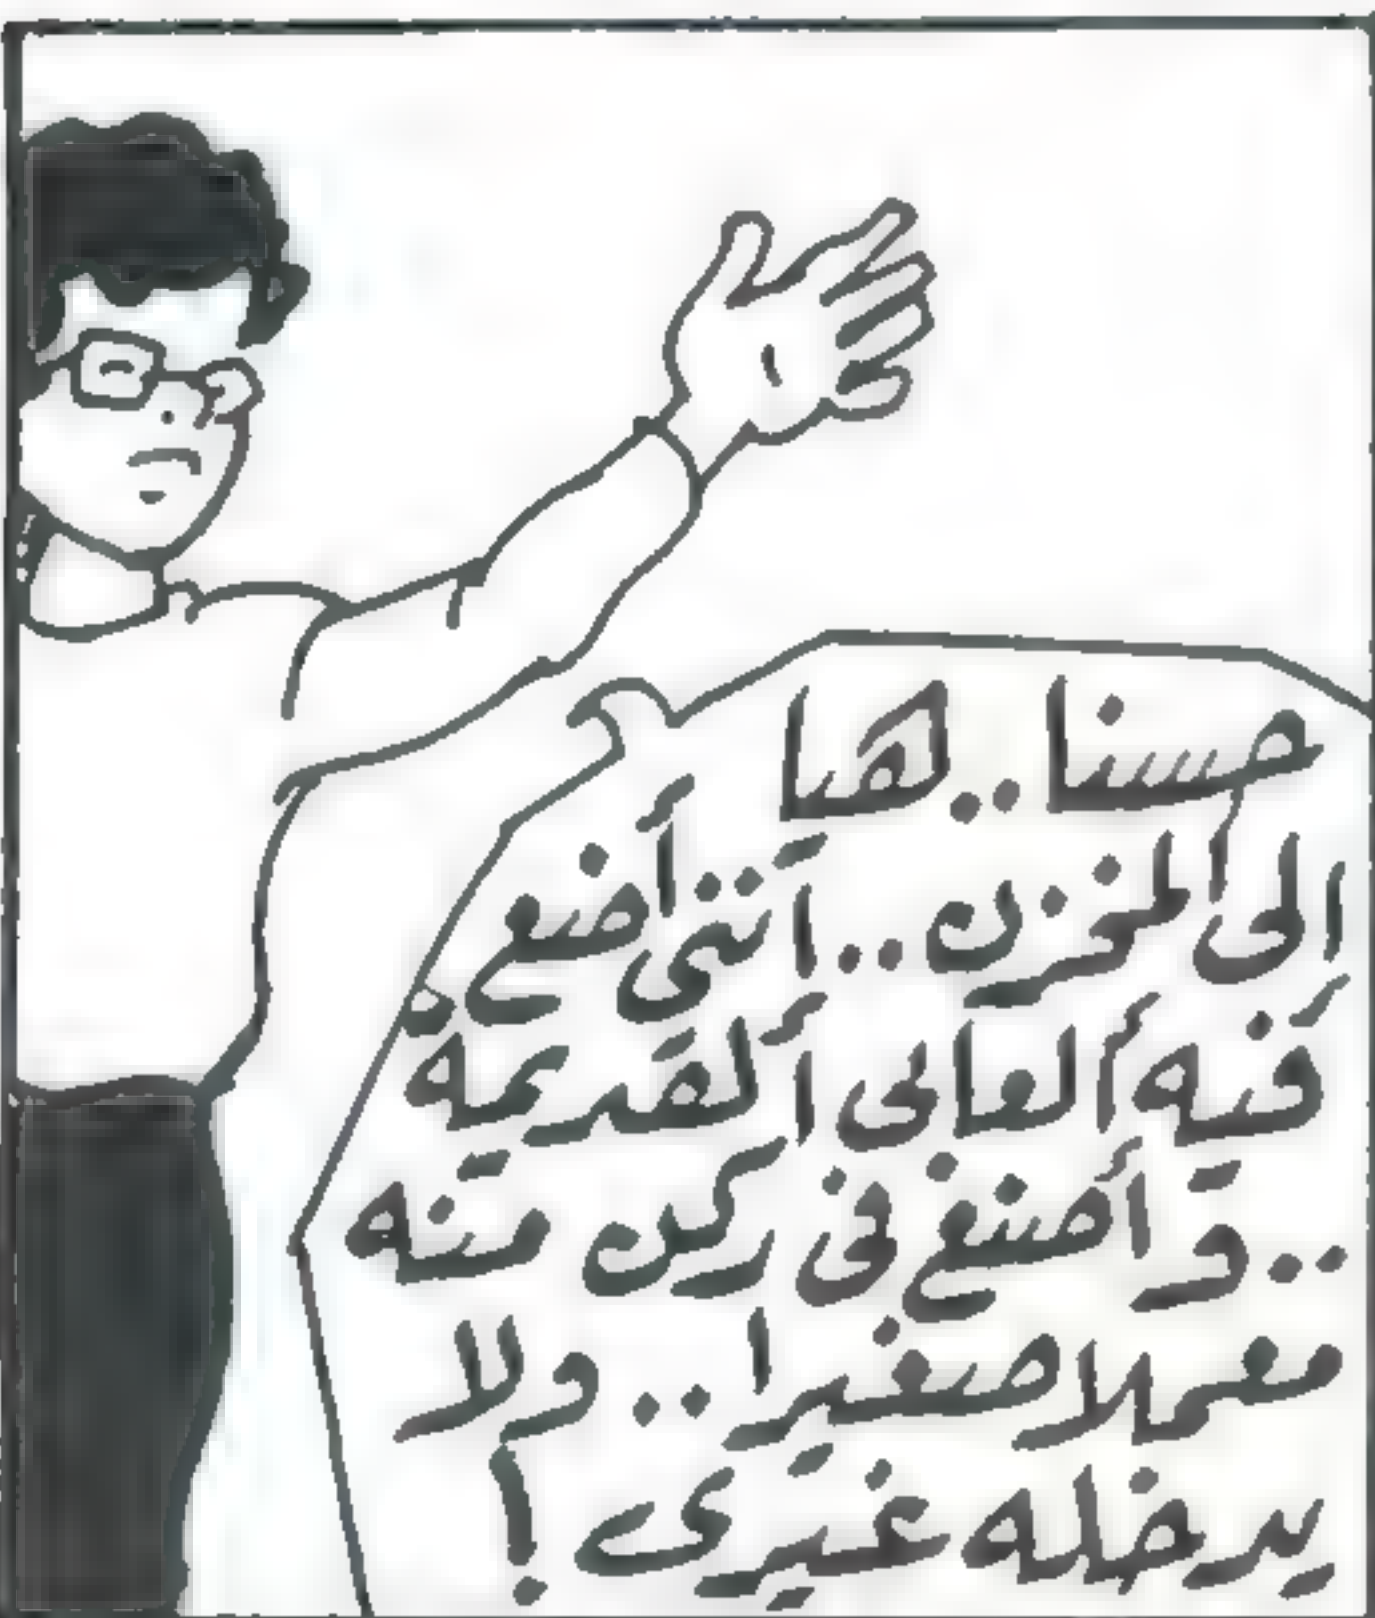 حسنا .. لهيا
إلى المخزن .. إننى أضع
فيه ألعابى القديمة
.. و أصنع فى ركن منه
معملا صغيرا .. ولا
يدخله غيرى !